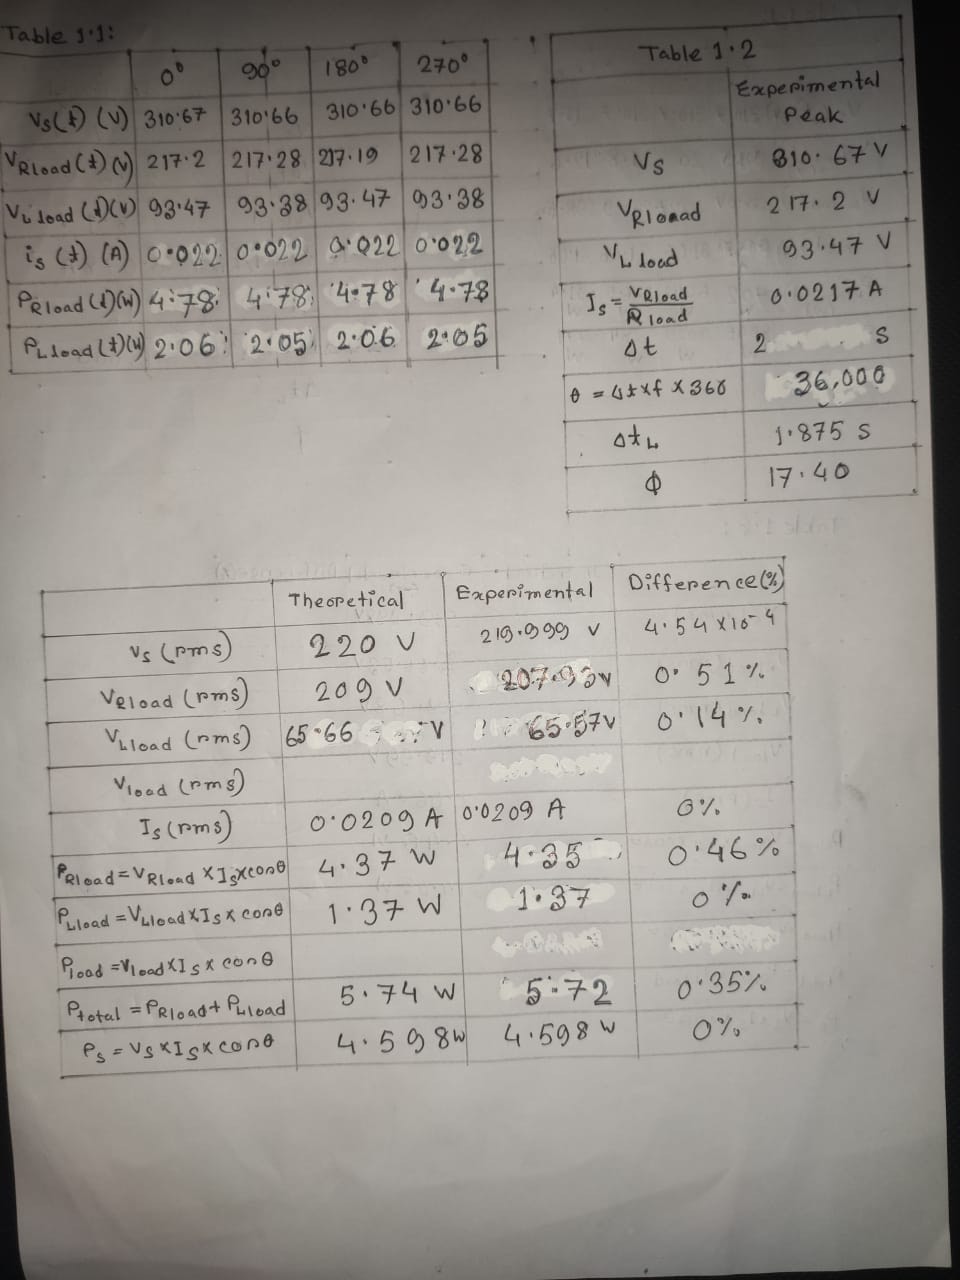 Table 1.1:
0° 90° 180° 270°
Vs(t) (V) 310.67 310.66 310.66 310.66
VRload(t)(V) 217.2 217.28 217.19 217.28
VLload(t)(V) 93.47 93.38 93.47 93.38
is(t) (A) 0.022 0.022 0.022 0.022
PRload(t)(W) 4.78 4.78 4.78 4.78
PLload(t)(W) 2.06 2.05 2.06 2.05
Table 1.2
Experimental
Peak
Vs 310.67 V
VRloaad 217.2 V
VL load 93.47 V
Is = VRload / Rload 0.0217 A
Δt 2 s
θ = Δt×f×360 36,000
ΔtL 1.875 s
ϕ 17.40
Theoretical Experimental Difference(%)
Vs (rms) 220 V 219.999 V 4.54×10-4
VRload (rms) 209 V 207.93V 0.51%
VLload (rms) 65.66 V 65.57V 0.14%
Vload (rms)
Is (rms) 0.0209 A 0.0209 A 0%
PRload = VRload × Is×conθ 4.37 W 4.35 0.46%
PLload = VLload×Is×conθ 1.37 W 1.37 0%
Pload = Vload×Is×conθ
Ptotal = PRload + PLload 5.74 W 5.72 0.35%
Ps = Vs×Is×conθ 4.598W 4.598 W 0%